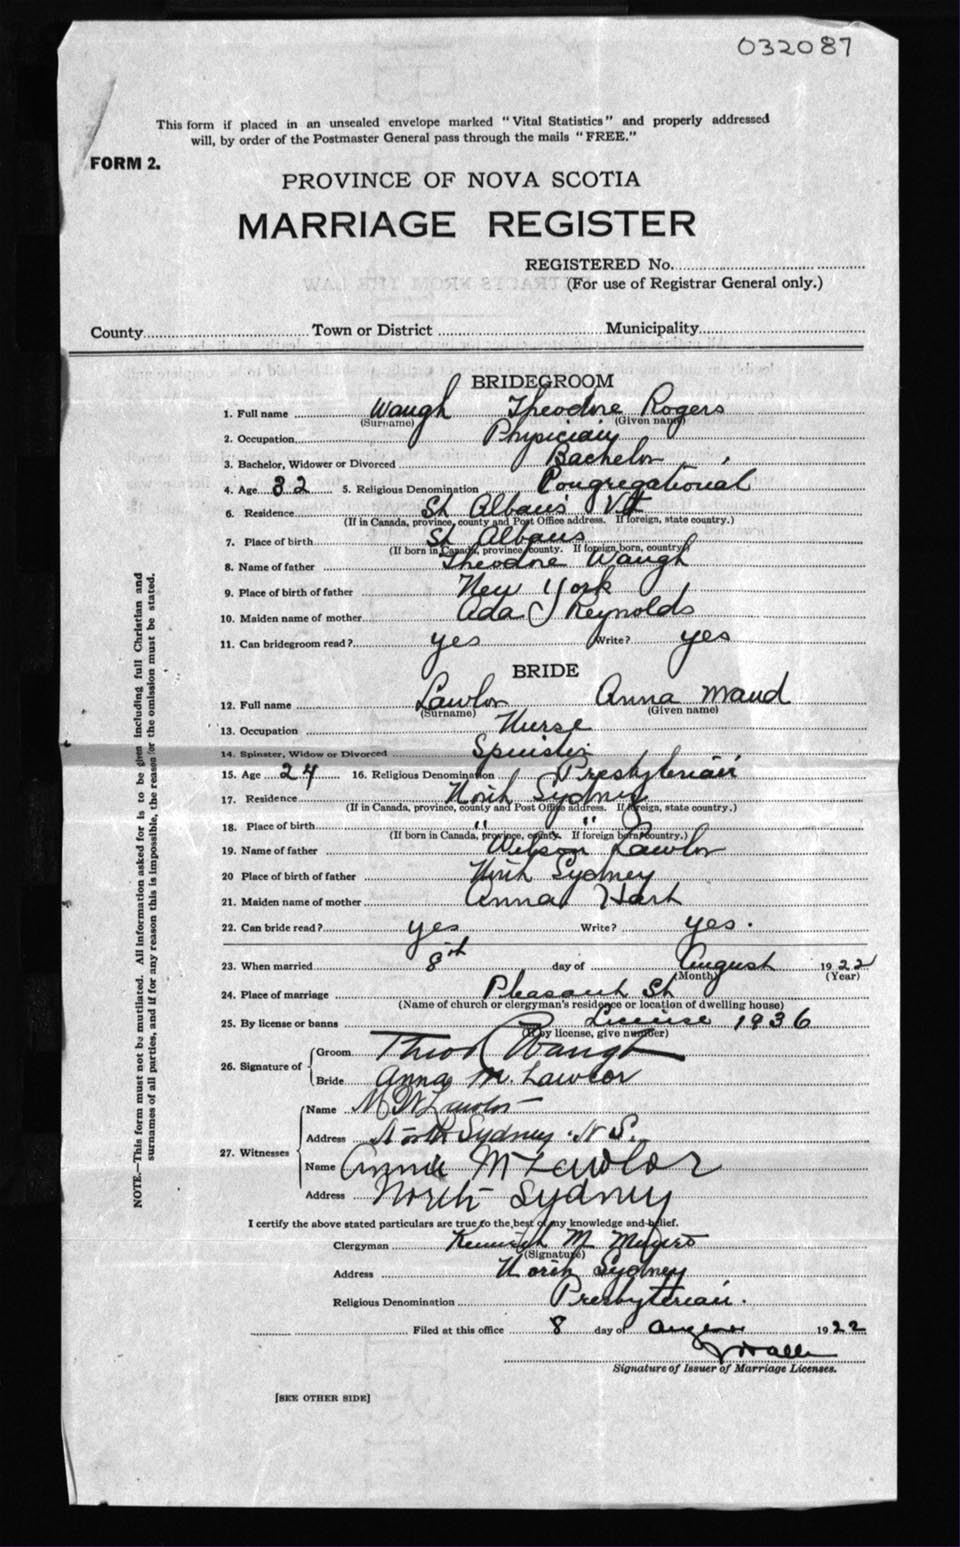 032087
This form if placed in an unsealed envelope marked "Vital Statistics" and properly addressed
will, by order of the Postmaster General pass through the mails "FREE."
FORM 2.
PROVINCE OF NOVA SCOTIA
MARRIAGE REGISTER
REGISTERED No.
(For use of Registrar General only.)
County Town or District Municipality
BRIDEGROOM
1. Full name Waugh Theodore Rogers
(Surname) (Given name)
2. Occupation Physician
3. Bachelor, Widower or Divorced Bachelor
4. Age 32 5. Religious Denomination Congregational
6. Residence St Albans Vt
(If in Canada, province, county and Post Office address. If foreign, state country.)
7. Place of birth St Albans
(If born in Canada, province, county. If foreign born, country)
8. Name of father Theodore Waugh
9. Place of birth of father New York
10. Maiden name of mother Ada J Reynolds
11. Can bridegroom read? yes Write? yes
BRIDE
12. Full name Lawlor Anna Maud
(Surname) (Given name)
13. Occupation Nurse
14. Spinster, Widow or Divorced Spinster
15. Age 24 16. Religious Denomination Presbyterian
17. Residence North Sydney
(If in Canada, province, county and Post Office address. If foreign, state country.)
18. Place of birth " "
(If born in Canada, province, county. If foreign born, country.)
19. Name of father Wilson Lawlor
20 Place of birth of father North Sydney
21. Maiden name of mother Anna Hart
22. Can bride read? yes Write? yes.
23. When married 8th day of August 1922
(Month) (Year)
24. Place of marriage Pleasant St
(Name of church or clergyman's residence or location of dwelling house)
25. By license or banns License 1936
(If by license, give number)
26. Signature of Groom Theo R Waugh
Bride Anna M. Lawlor
27. Witnesses Name Lawlor
Address North Sydney. N S.
Name Annie M Lawlor
Address North Sydney
I certify the above stated particulars are true to the best of my knowledge and belief.
Clergyman Kenneth M
(Signature)
Address North Sydney
Religious Denomination Presbyterian.
Filed at this office 8 day of August 1922
Signature of Issuer of Marriage Licenses.
[SEE OTHER SIDE]
NOTE.—This form must not be mutilated. All information asked for is to be given including full Christian and
surnames of all parties, and if for any reason this is impossible, the reason for the omission must be stated.